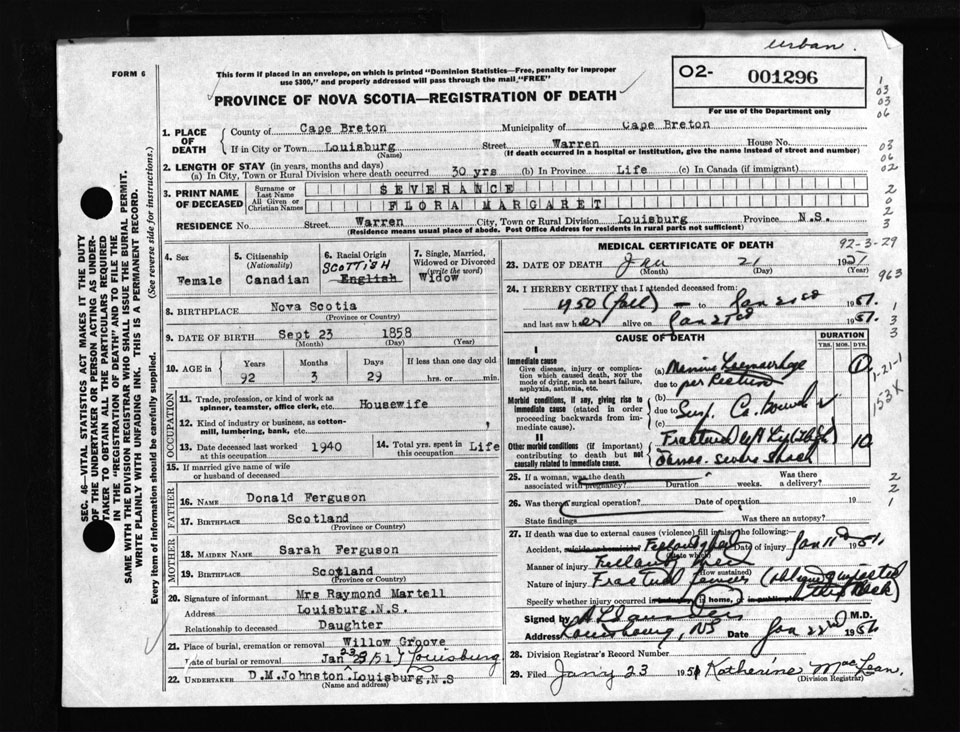 urban.
FORM 6
This form if placed in an envelope, on which is printed "Dominion Statistics—Free, penalty for improper
use $300," and properly addressed will pass through the mail "FREE"
PROVINCE OF NOVA SCOTIA—REGISTRATION OF DEATH
O2- 001296
For use of the Department only
1. PLACE OF DEATH
County of Cape Breton Municipality of Cape Breton
If in City or Town Louisburg Street Warren House No.
(Name) (If death occurred in a hospital or institution, give the name instead of street and number)
2. LENGTH OF STAY (in years, months and days)
(a) In City, Town or Rural Division where death occurred 30 yrs (b) In Province Life (c) In Canada (if immigrant)
3. PRINT NAME OF DECEASED
Surname or Last Name SEVERANCE
All Given or Christian Names FLORA MARGARET
RESIDENCE No. Street Warren City, Town or Rural Division Louisburg Province N.S.
(Residence means usual place of abode. Post Office Address for residents in rural parts not sufficient)
4. Sex
Female
5. Citizenship
(Nationality)
Canadian
6. Racial Origin
SCOTTISH
English
7. Single, Married,
Widowed or Divorced
(write the word)
Widow
8. BIRTHPLACE Nova Scotia
(Province or Country)
9. DATE OF BIRTH Sept 23 1858
(Month) (Day) (Year)
10. AGE in
Years Months Days If less than one day old
92 3 29 hrs. or min.
OCCUPATION
11. Trade, profession, or kind of work as
spinner, teamster, office clerk, etc. Housewife
12. Kind of industry or business, as cotton-
mill, lumbering, bank, etc.
13. Date deceased last worked
at this occupation 1940
14. Total yrs. spent
in this occupation Life
15. If married give name of wife
or husband of deceased
FATHER
16. NAME Donald Ferguson
17. BIRTHPLACE Scotland
(Province or Country)
MOTHER
18. MAIDEN NAME Sarah Ferguson
19. BIRTHPLACE Scotland
(Province or Country)
20. Signature of informant Mrs Raymond Martell
Address Louisburg.N.S.
Relationship to deceased Daughter
21. Place of burial, cremation or removal Willow Groove
Date of burial or removal Jan 23/51 Louisburg
22. UNDERTAKER D.M.Johnston.Louisburg,N.S
(Name and address)
MEDICAL CERTIFICATE OF DEATH
92-3-29
23. DATE OF DEATH Jan 21 1951
(Month) (Day) (Year)
24. I HEREBY CERTIFY that I attended deceased from:
1950 (fall) — to Jan 1951.
and last saw her alive on Jan 1951.
CAUSE OF DEATH
DURATION
YRS. MOS. DYS.
I
Immediate cause
Give disease, injury or complica-
tion which caused death, not the
mode of dying, such as heart failure,
asphyxia, asthenia, etc.
(a) Massive
due to per Rectum
Morbid conditions, if any, giving rise to
immediate cause (stated in order
proceeding backwards from im-
mediate cause).
(b)
due to Susp. Ca. bowel
(c)
II
Other morbid conditions (if important)
contributing to death but not
causally related to immediate cause.
Fractured left 10
severe shock
25. If a woman, was the death
associated with pregnancy? Duration weeks.
Was there
a delivery?
26. Was there a surgical operation? Date of operation 19
State findings Was there an autopsy?
27. If death was due to external causes (violence) fill in also the following:
Accident, suicide or homicide? Fell Date of injury Jan 11 1951.
(State which)
Manner of injury
(How sustained)
Nature of injury Fracture
Specify whether injury occurred in industry, in home, or in public place
Signed by M.D.
Address Louisbourg, NS Date Jan 22nd
28. Division Registrar's Record Number
29. Filed Jan'y 23 1951 Katherine MacLean.
(Division Registrar)
SEC. 46—VITAL STATISTICS ACT MAKES IT THE DUTY
OF THE UNDERTAKER OR PERSON ACTING AS UNDER-
TAKER TO OBTAIN ALL THE PARTICULARS REQUIRED
IN THE "REGISTRATION OF DEATH" AND TO FILE THE
SAME WITH THE DIVISION REGISTRAR WHO SHALL ISSUE THE BURIAL PERMIT.
WRITE PLAINLY WITH UNFADING INK. THIS IS A PERMANENT RECORD.
Every item of information should be carefully supplied. (See reverse side for instructions.)
1
03
03
06
03
06
02
2
0
2
3
963
1
3
3
1-21-1
153X
2
2
1